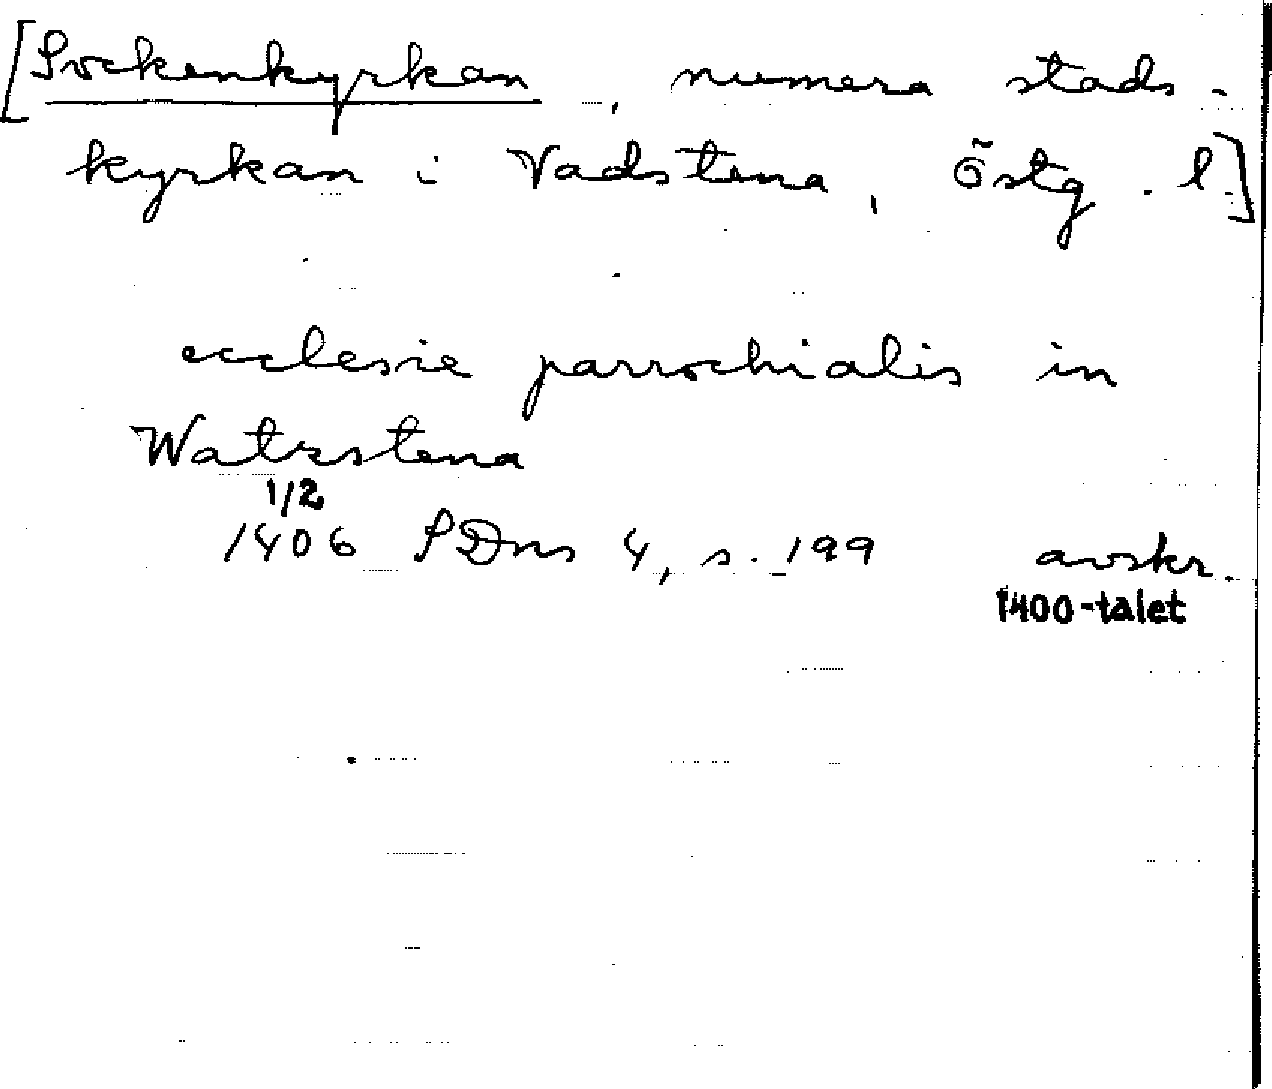 [Sockenkyrkan, numera stads-
kyrkan i Vadstena, Östg. l.]
ecclesie parrochialis in
Watzstena
1/2
1406 SDns 4, s. 199 avskr.
1400-talet